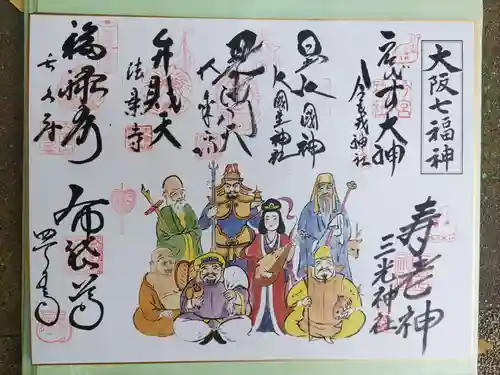 大阪七福神
ゑびす大神
今宮戎神社
大国神
大国主神社
毘沙門天
大乗坊
弁財天
法案寺
福禄寿
長久寺
寿老神
三光神社
布袋尊